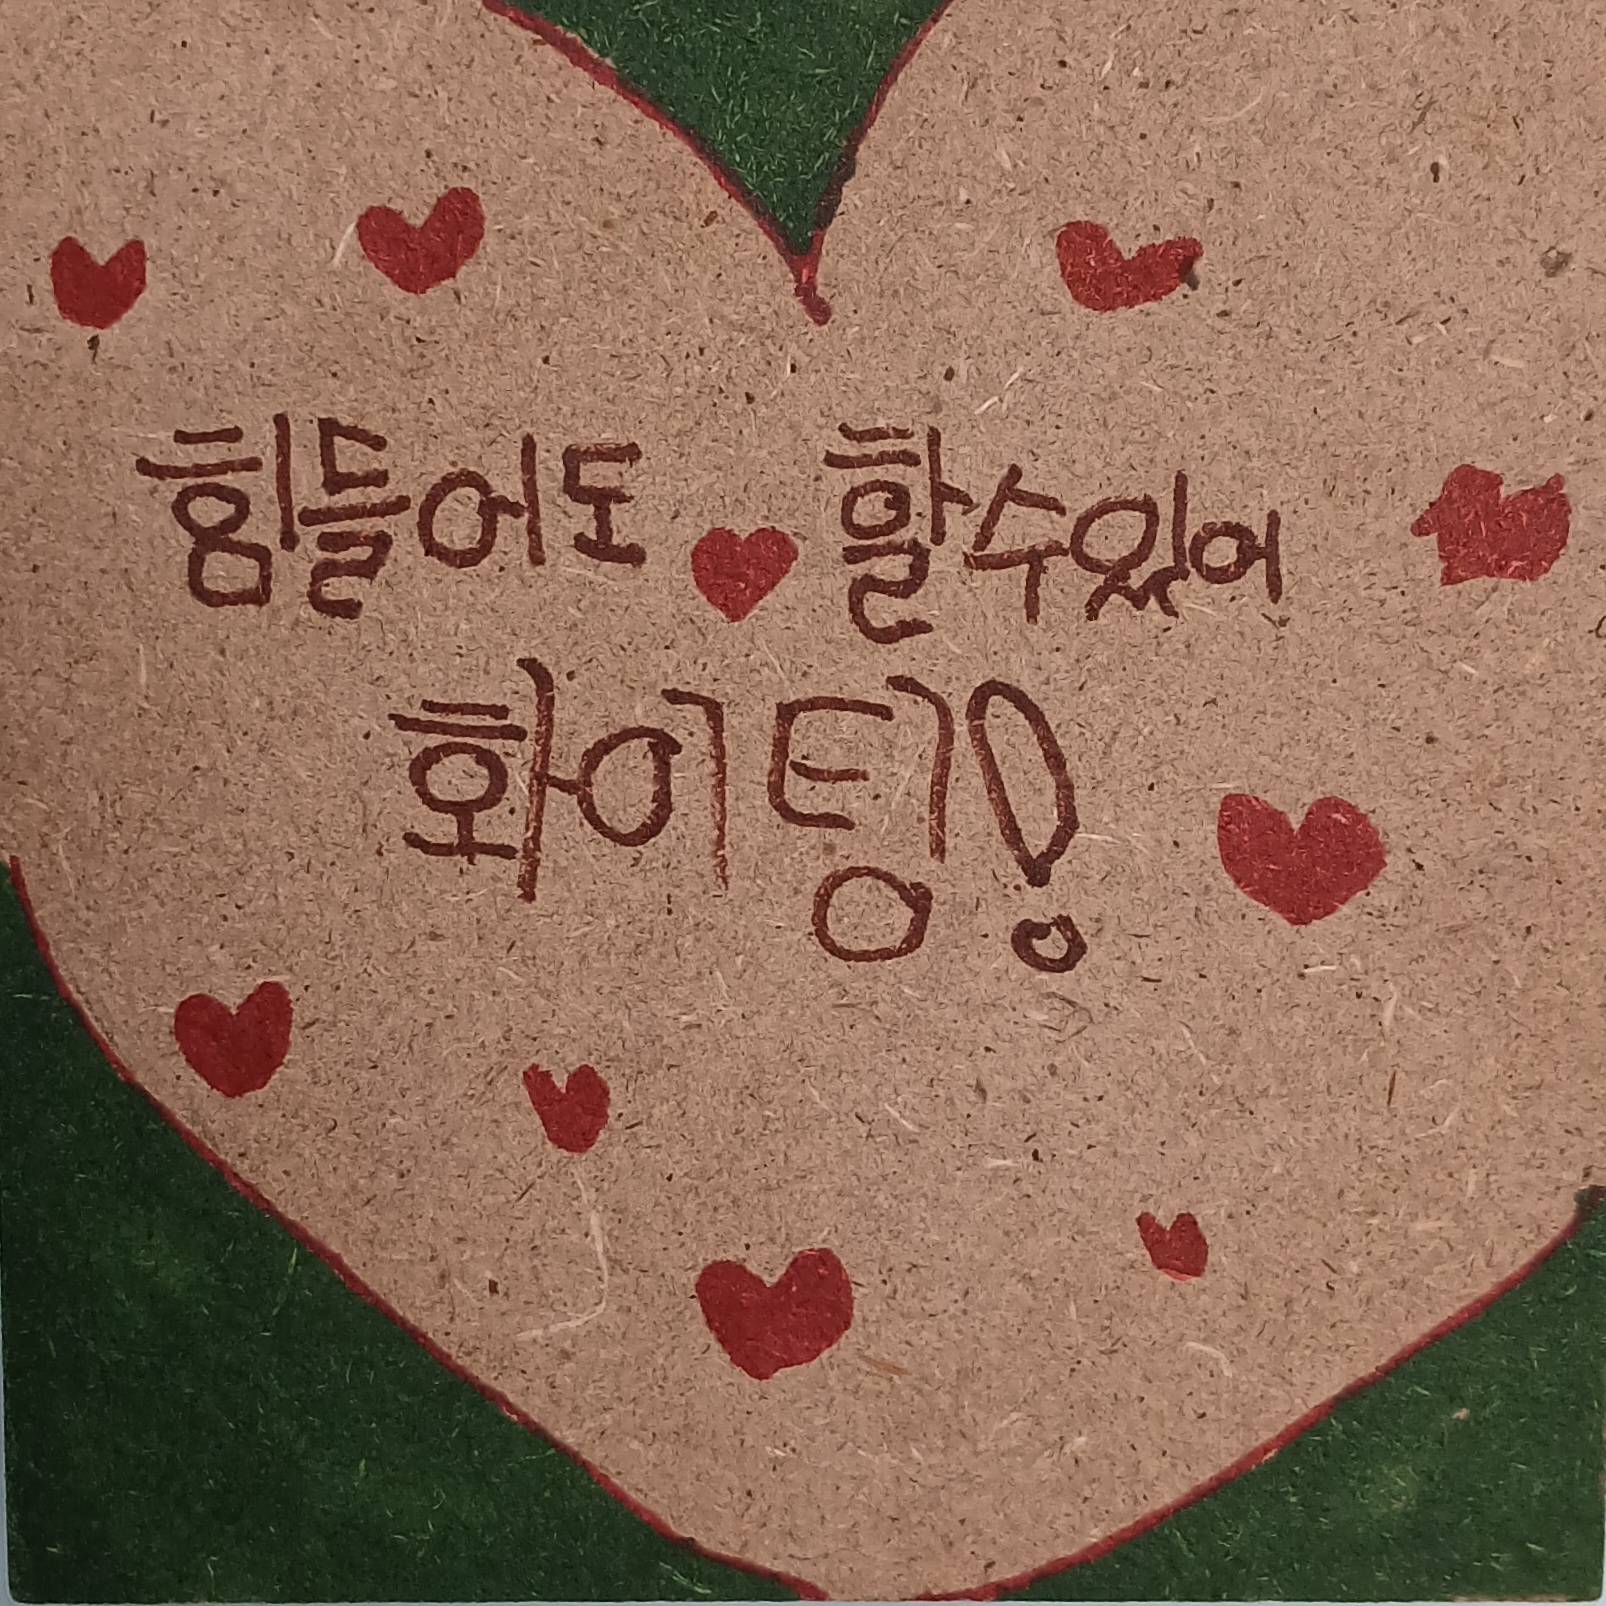 힘들어도 할수있어
화이팅!